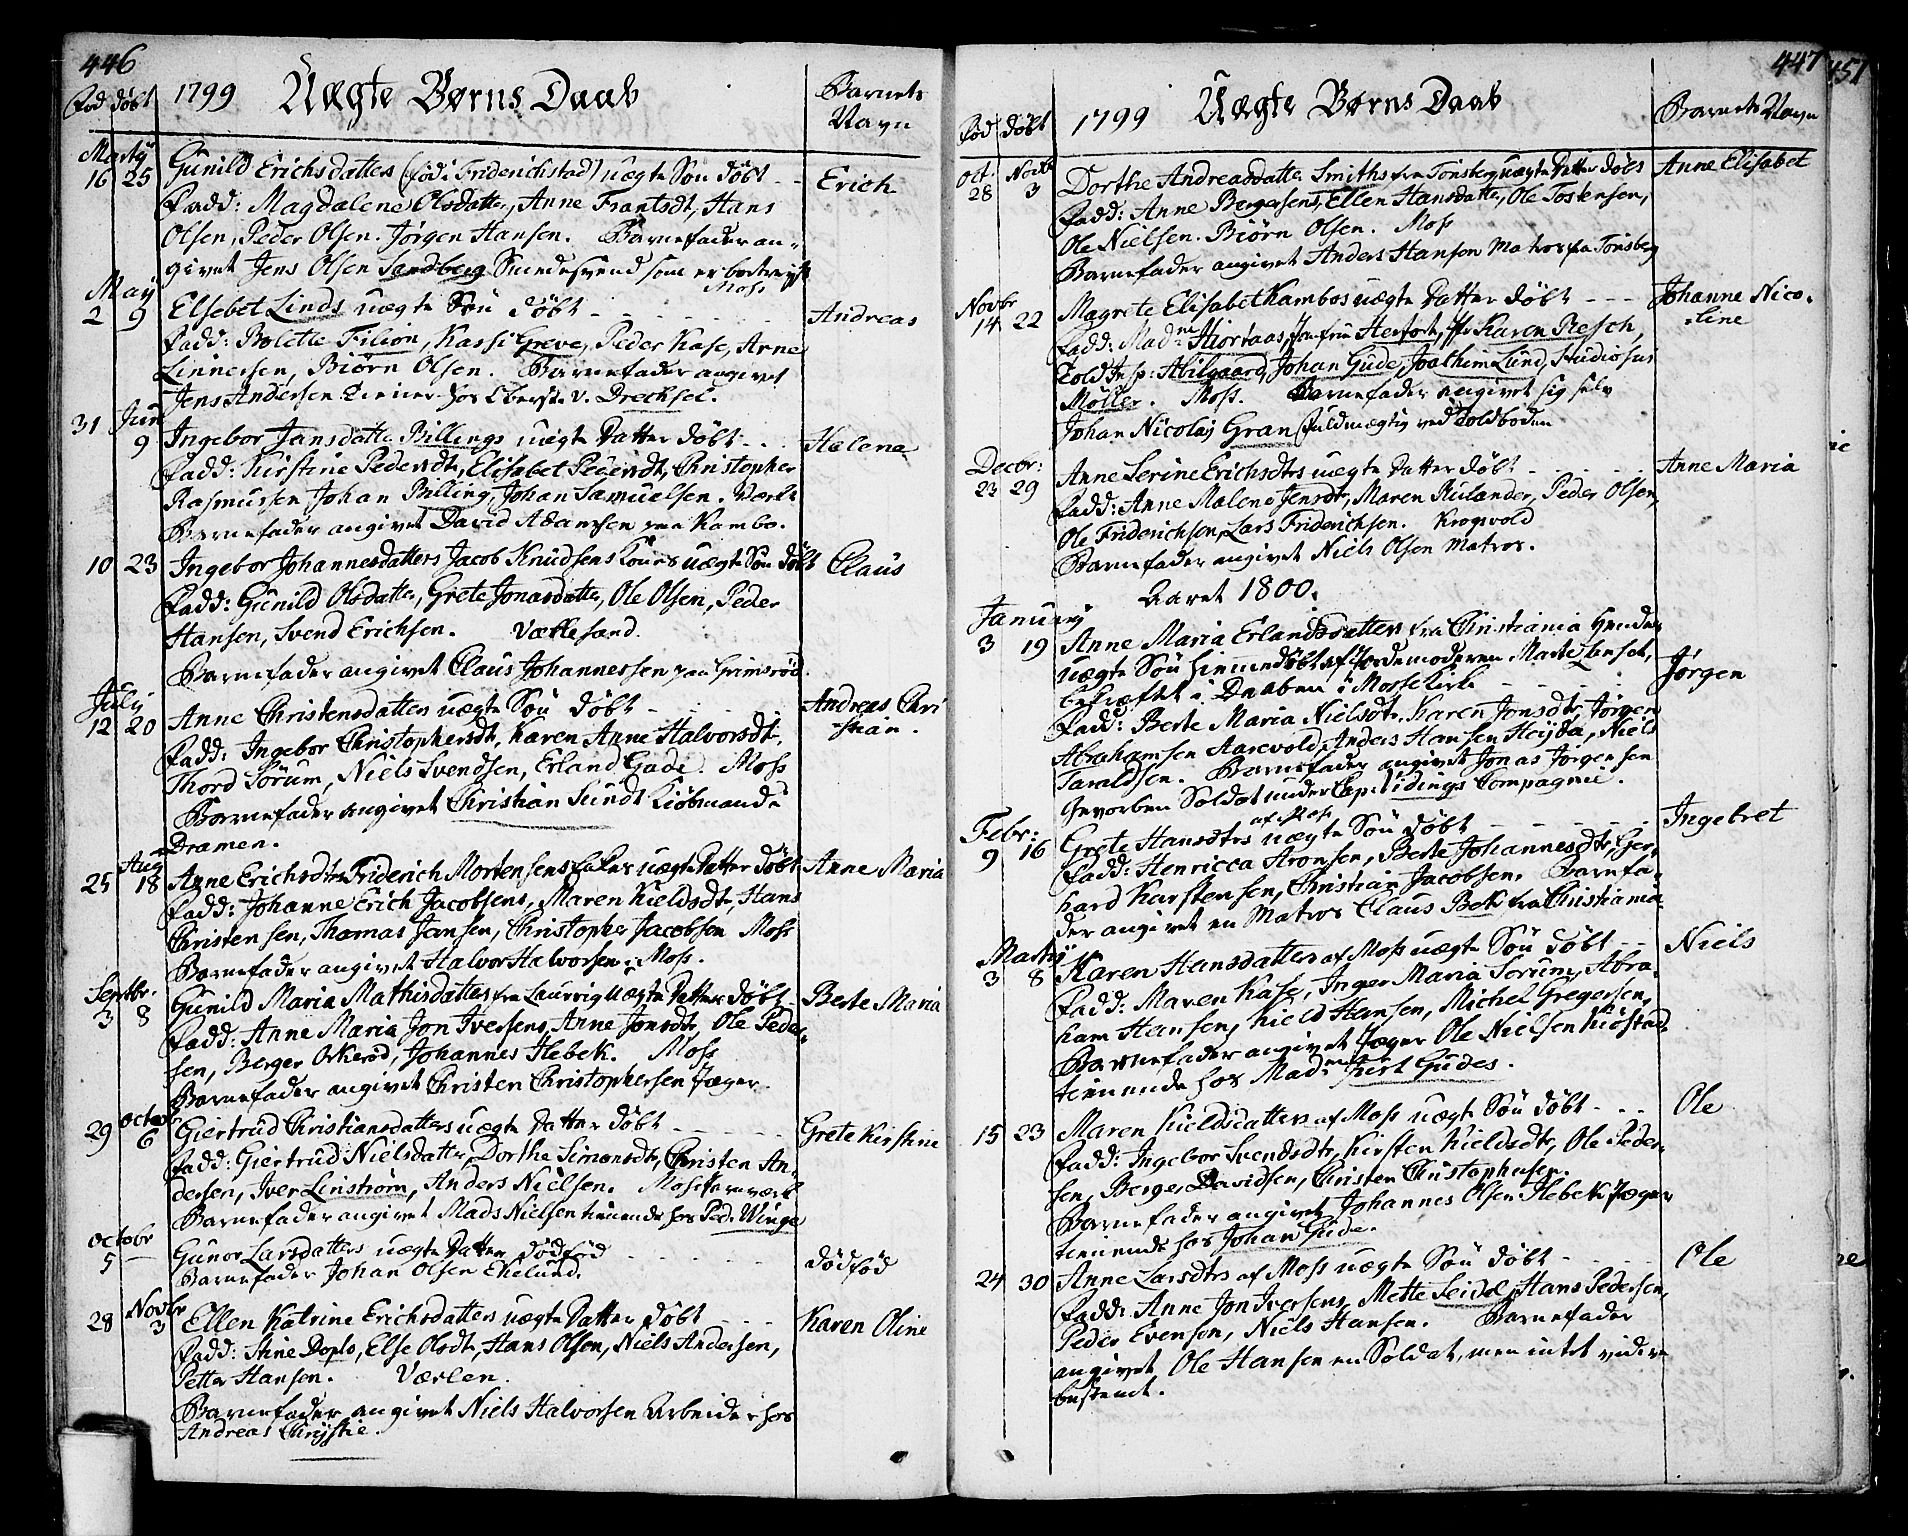 446
1799 Uægte Børns Daab
Barnets Navn
Fød døbt
Martij
16 25 Gunild Erichsdatters (fød i Friderichstad) uægte Søn døbt - - Erich
Fadd: Magdalene Olsdatter, Anne Frantsdt, Hans
Olsen, Peder Olsen. Jørgen Hansen. Barnefader an-
givet Jens Olsen Sandberg Smedesvend som er bortreyst
Moss
May
2 9 Elsebet Linds uægte Søn døbt - - - Andreas
Fadd: Bolette Filion, Kassi Greve, Peder Kase, Arne
Linnersen, Biørn Olsen. Barnefader angivet
Jens Andersen Tiener hos Oberste v. Drechsel.
31 Jun 9 Ingebor Jansdatter Billings uægte Datter døbt - - Helena
Fadd: Kirstine Pedersdt, Elisabet Pedersdt, Christopher
Rasmussen Johan Billing, Johan Samuelsen. Værle
Barnefader angivet David Adamsen paa Kambo.
10 23 Ingebor Johannesdatters Jacob Knudsens Kones uægte Søn døbt Claus
Fadd: Gunild Olsdatter, Grete Jonasdatter, Ole Olsen, Peder
Hansen, Svend Erichsen. Værlesand.
Barnefader angivet Claus Johannessen paa Grimsrød.
July
12 20 Anne Christensdatters uægte Søn døbt - - - Andreas Chri-
stian.
Fadd: Ingebor Christophersdt, Karen Anne Halvorsdt,
Thord Sørum, Niels Svendsen, Erland Gude. Moss
Barnefader angivet Christian Sundt Kiøbmand i
Dramen.
25 Aug 18 Anne Erichsdtrs Friderich Mortensens Enkes uægte Datter døbt Anne Maria
Fadd: Johanne Erich Jacobsens, Maren Kieldsdt, Hans
Christensen, Thomas Jansen, Christopher Jacobsen Moss
Barnefader angivet Halvor Halvorsen i Moss.
Septbr.
3 8 Gunild Maria Mathisdatters fra Laurvig uægte Datter døbt - Berte Maria
Fadd: Anne Maria Jon Iversens, Anne Jonsdt, Ole Peder-
sen, Berger Orkerød, Johannes Hebek. Moss
Barnefader angivet Christen Christophersen Jæger.
29 octobr 6 Giertrud Christiansdatters uægte Datter døbt - - - Grete Kirstine
Fadd: Giertrud Nielsdatter, Dorthe Simonsdt, Christen An-
dersen, Iver Linstrøm, Anders Nielsen. Moss Jernværk
Barnefader angivet Mads Nielsen tienende hos Ped. Winge
octobr
5 — Gunor Larsdatters uægte Datter dødfød - - - dødfød
Barnefader Johan Olsen Ekelund.
28 Novbr 3 Ellen Katrine Erichsdatters uægte Datter døbt - - - Karen Oline
Fadd: Stine Dopls, Else Olsdt, Hans Olsen, Niels Andersen,
Petter Hansen. Værlen.
Barnefader angivet Niels Halvorsen Arbeider hos
Andreas Chrystie.
447
451
Fød døbt 1799 Uægte Børns Daab Barnets Navn
oct. 28 Novbr 3 Dorthe Andreasdatter Smiths fra Tønsberg uægte Datter døbt Anne Elisabet
Fadd: Anne Bergersens, Ellen Hansdatter, Ole Tostensen,
Ole Nielsen. Biørn Olsen. Moss
Barnefader angivet Anders Hansen Matros fra Tønsberg
Novbr
14 22 Magrete Elisabet Kambos uægte Datter døbt - - - Johanne Nico-
line
Fadd: Madme Hiortaas, Jomfrue Herfort, Jfr Karen Resch,
Told Insp: Abilgaard, Johan Gude, Joachim Lund, Studiosus
Møller. Moss. Barnefader angivet sig selv
Johan Nicolaij Gran Fuldmægtig ved Toldboden
Decbr:
23 29 Anne Serine Erichsdtrs uægte Datter døbt - - - Anne Maria
Fadd: Anne Malene Jensdt, Maren Rulander, Peder Olsen,
Ole Friderichsen, Lars Friderichsen. Krogsvold
Barnefader angivet Niels Olsen Matros.
Aaret 1800.
January
3 19 Anne Maria Erlandsdatters fra Christiania Hendes
uægte Søn hiemmedøbt af Jordemoderen Marte Jensdt, Jørgen
bekræftet i Daaben i Mosse Kirke - - -
Fadd: Berte Maria Nielsdt, Karen Jonsdt, Jørgen
Abrahamsen Aarevold, Anders Hansen Heyda, Niels
Taraldsen. Barnefader angivet Jonas Jørgensen
Gevorben Soldat under Cap: Lidings Compagnie.
Febr: af Moss
9 16 Grete Hansdtrs uægte Søn døbt - - - Ingebret
Fadd: Henricca Aronsen, Berte Johannesdt, Ger-
hard Karstensen, Christian Jacobsen. Barnefa-
der angivet en Matros Claus Bek fra Christiania.
Martij
3 8 Karen Hansdatters af Moss uægte Søn døbt - - Niels
Fadd: Maren Kase, Inger Maria Sorum, Abra-
ham Hansen, Kield Hansen, Michel Gregersen,
Barnefader angivet Jæger Ole Nielsen Kiøstad
tienende hos Madme Kirt Gudes.
15 23 Maren Kieldsdatters af Moss uægte Søn døbt - - Ole
Fadd: Ingebor Svendsdt, Kirsten Kieldsdt, Ole Peder-
sen, Berger Davidsen, Christen Christophersen.
Barnefader angivet Johannes Olsen Hebek Jæger
tienende hos Johan Gude.
24 30 Anne Larsdtrs af Moss uægte Søn døbt - - - Ole
Fadd: Anne Jon Iversens, Mette Seidel, Hans Pedersen,
Peder Evensen, Niels Hansen. Barnefader
angivet Ole Hansen en Soldat, men intet videre
bestemt.